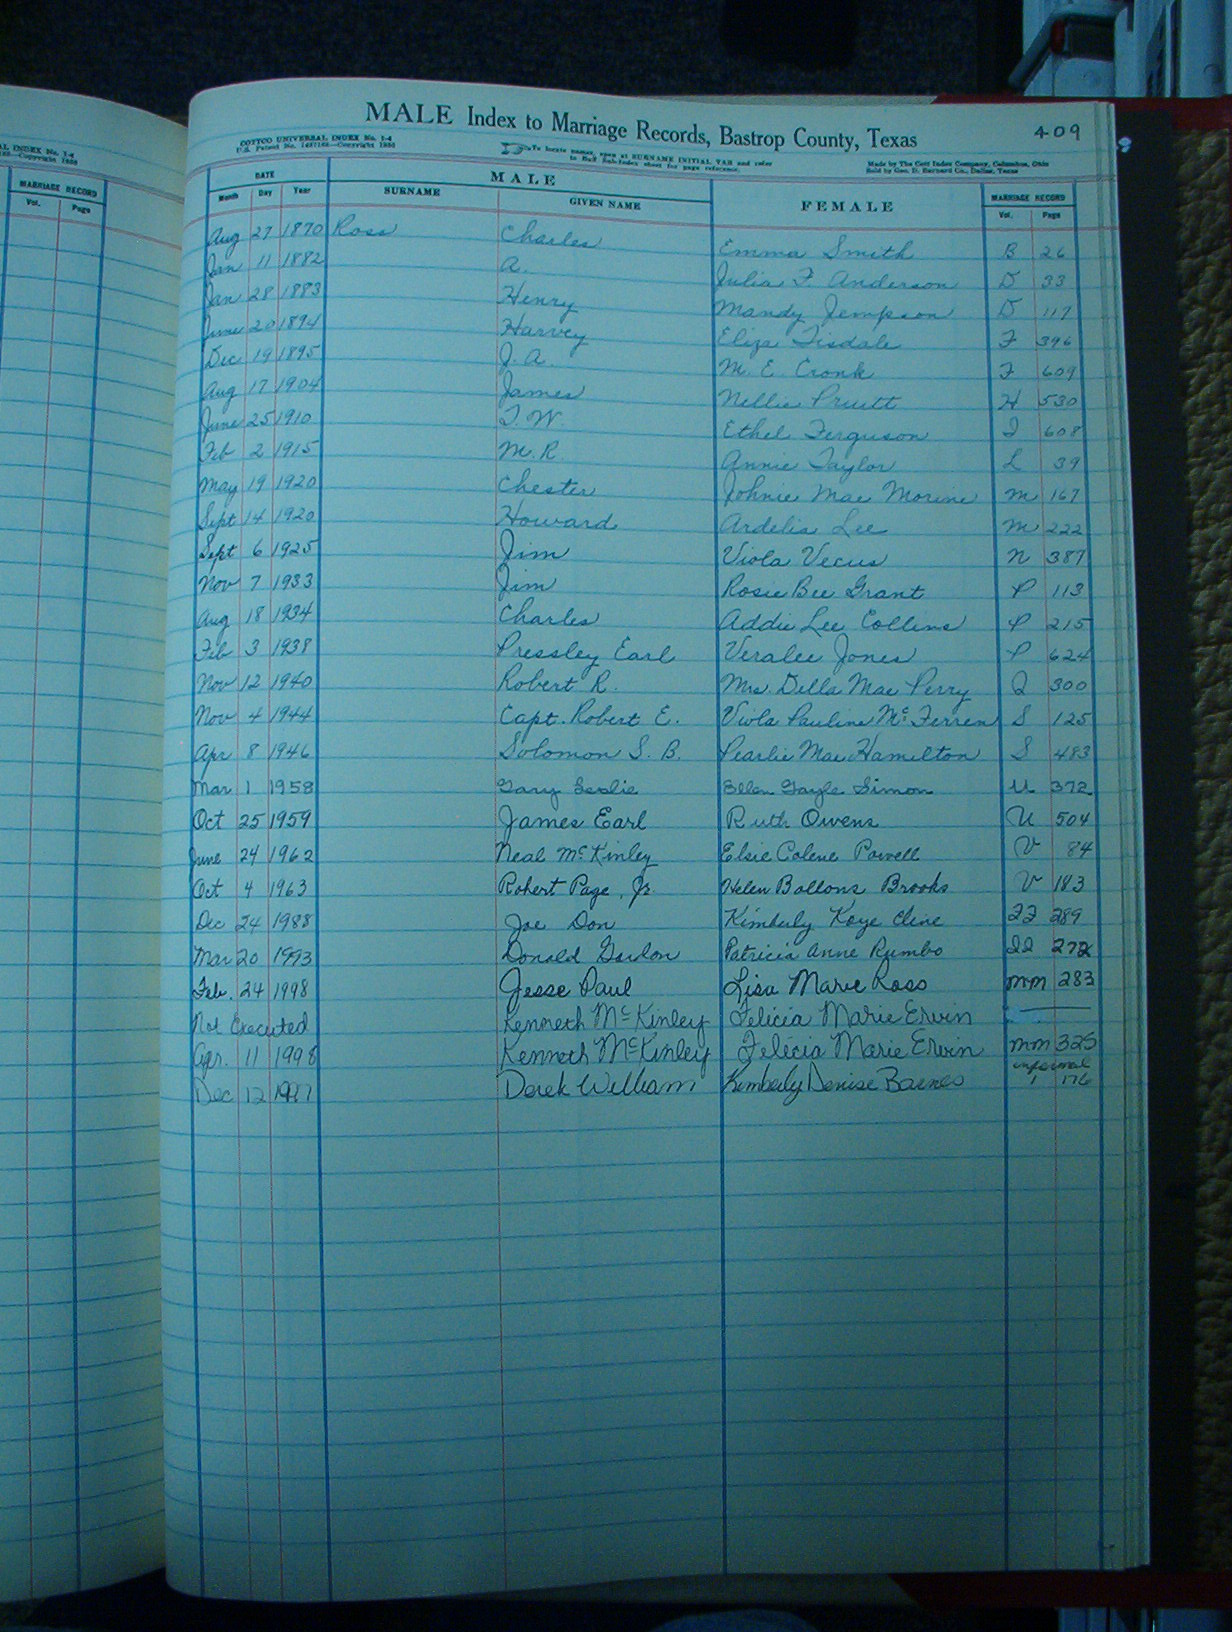 AL INDEX No. 1-4
MARRIAGE RECORD
Vol. Page
MALE Index to Marriage Records, Bastrop County, Texas 409
COTTCO UNIVERSAL INDEX No. 1-4
To locate names, open at SURNAME INITIAL TAB and refer
Made by The Cott Index Company, Columbus, Ohio
Sold by Geo. D. Barnard Co., Dallas, Texas
DATE MALE FEMALE MARRIAGE RECORD
Month Day Year SURNAME GIVEN NAME Vol. Page
Aug 27 1870 Ross Charles Emma Smith B 26
Jan 11 1882 A. Julia F. Anderson D 33
Jan 28 1883 Henry Mandy Jempson D 117
June 20 1894 Harvey Eliza Tisdale F 396
Dec 19 1895 J. A. M. E. Cronk F 609
Aug 17 1904 James Nellie Pruett H 530
June 25 1910 T. W. Ethel Ferguson I 608
Feb 2 1915 M. R. Annie Taylor L 39
May 19 1920 Chester Johnie Mae Morine M 167
Sept 14 1920 Howard Ardelia Lee M 222
Sept 6 1925 Jim Viola Vecus N 387
Nov 7 1933 Jim Rosie Bee Grant P 113
Aug 18 1934 Charles Addie Lee Collins P 215
Feb 3 1938 Pressley Earl Veralee Jones P 624
Nov 12 1940 Robert R. Mrs. Della Mae Perry Q 300
Nov 4 1944 Capt. Robert E. Viola Pauline McFerren S 125
Apr 8 1946 Solomon S. B. Pearlie Mae Hamilton S 483
Mar 1 1958 Gary Leslie Ellen Gayle Simon U 372
Oct 25 1959 James Earl Ruth Owens U 504
June 24 1962 Neal McKinley Elsie Colene Powell V 84
Oct 4 1963 Robert Page, Jr. Helen Ballons Brooks V 183
Dec 24 1988 Joe Don Kimberly Kaye Cline 289
Mar 20 1993 Donald Patricia Anne Rumbo 272
Feb. 24 1998 Jesse Paul Lisa Marie Ross MM 283
Not Executed Kenneth McKinley Felicia Marie Ervin
Apr. 11 1998 Kenneth McKinley Felecia Marie Ervin MM 325
Dec 12 1997 Derek William Kimberly Denise Barnes informal 1 176